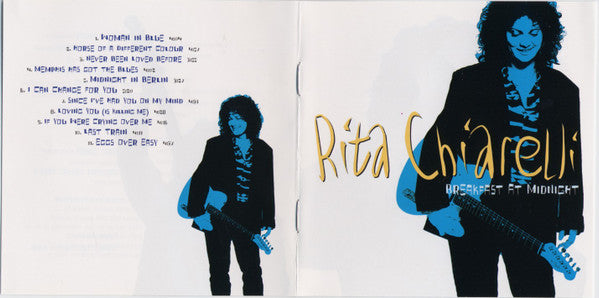 1. Woman in Blue
2. Horse of a Different Colour
3. Never Been Loved Before
4. Memphis Has Got the Blues
5. Midnight in Berlin
6. I Can Change for You
7. Since I've Had You on My Mind
8. Loving You (Is Killing Me)
9. If You Were Crying Over Me
10. Last Train
11. Eggs Over Easy
Rita Chiarelli
Breakfast at Midnight